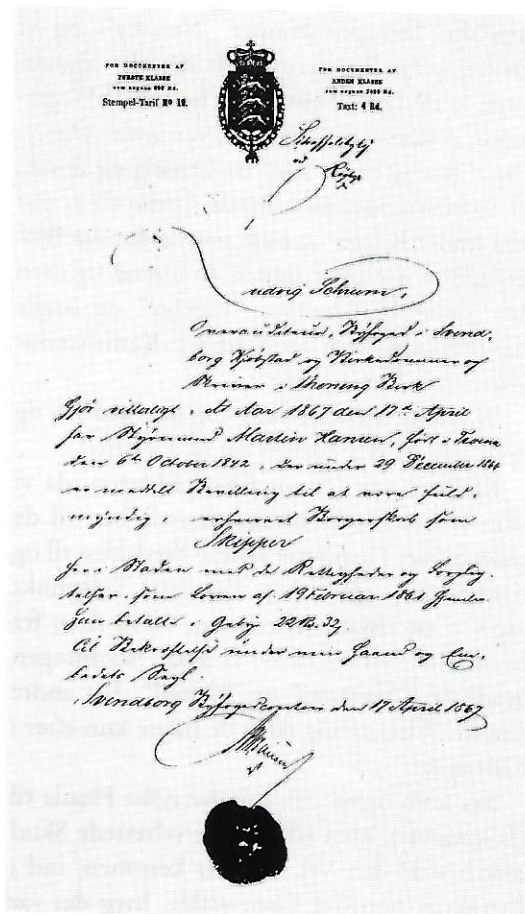 FOR DOCUMENTER AF
FØRSTE KLASSE
Stempel-Tarif No 10.
FOR DOCUMENTER AF
ANDEN KLASSE
Text: 4 Rd.
Skaffeltbye
Schrum,
Overauditeur, Byfoged i Svend-
borg Kjøbstad og Birkedommer og
Skriver i Birk
Gjør vitterligt, At Aar 1867 den 17de April
har Styrmand Martin Hansen, født i
den 6te October 1842, der under 29 December 1866
er meddelt Bevilling til at være fuld-
myndig, erhvervet Borgerskab som
Skipper
her i Staden med de Rettigheder og Forplig-
telser, som Loven af 19 Februar 1861
Han betalte i Gebyr 22 Rd. 32
Til Bekræftelse under min Haand og Em-
bedets Segl.
Svendborg den 17 April 1867